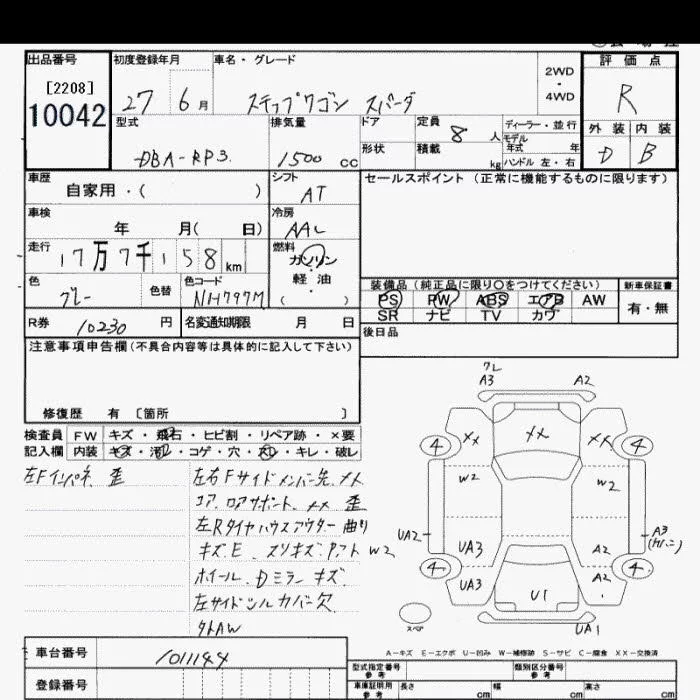 出品番号 初度登録年月 車名・グレード 2WD・4WD 評価点
[2208]
10042
27 6月 ステップワゴン スパーダ R
型式 排気量 ドア 定員 8人 ディーラー・並行 外装 内装
モデル年式 年
DBA-RP3 1500cc 形状 積載 kg ハンドル 左・右 D B
車歴 自家用・( ) シフト AT セールスポイント (正常に機能するものに限ります)
車検 年 月( 日) 冷房 AAC
走行 17万7千158km 燃料 ガソリン・軽油・( )
色 グレー 色替 色コード NH797M
装備品 (純正品に限り〇をつけてください) 新車保証書
PS PW ABS エアB AW 有・無
SR ナビ TV カワ
R券 10230円 名変通知期限 月 日 後日品
注意事項申告欄(不具合内容等は具体的に記入して下さい)
修復歴 有 〔箇所 〕
検査員 FW キズ・飛石・ヒビ割・リペア跡・×要
記入欄 内装 キズ・汚れ・コゲ・穴・キレ・破レ
左Fインパネ 歪
左右Fサイドメンバー先 メト
コア、ロアサポート、XX 歪
左Rタイヤハウスアウター 曲り
キズE、スリキズ、タワト W2
ホイール、Dミラー キズ
左サイドシルカバー欠
外AW
フレ
A3 A2
4 XX XX XX 4
W2 W2
UA2 A3
UA3 A2
4 4
UA3 A2
U1
スペア
UA1
A-キズ E-エクボ U-凹み W-補修跡 S-サビ C-腐食 XX-交換済
車台番号 1011144
登録番号
型式指定番号 参考 類別区分番号 参考
車庫証明用 参考 長さ cm 幅 cm 高さ cm